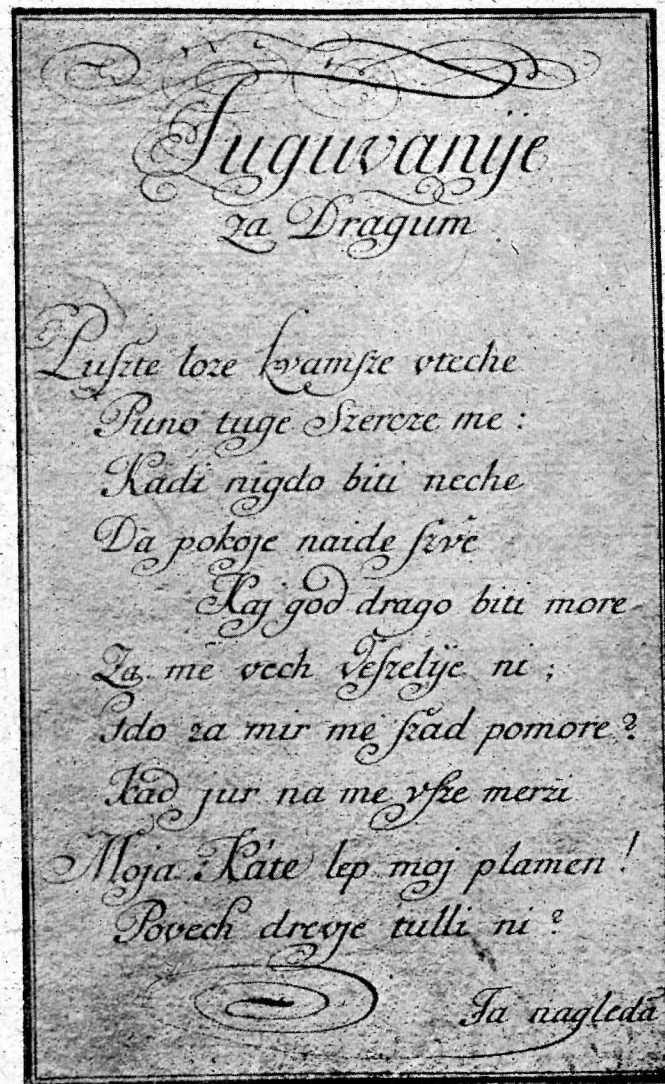 Tuguvanije
za Dragum
Puſzte loze kvamſze vteche
Puno tuge Szercze me :
Kadi nigdo biti neche
Da pokoje naide ſzvè
Kaj god drago biti more
Za mè vech veſzelije ni ;
Gdo za mir mè ſzad pomore ?
Kad jur na me vſze merzi
Moja Káte lep moj plamen !
Povech drevje tulli ni ?
Ja nagleda